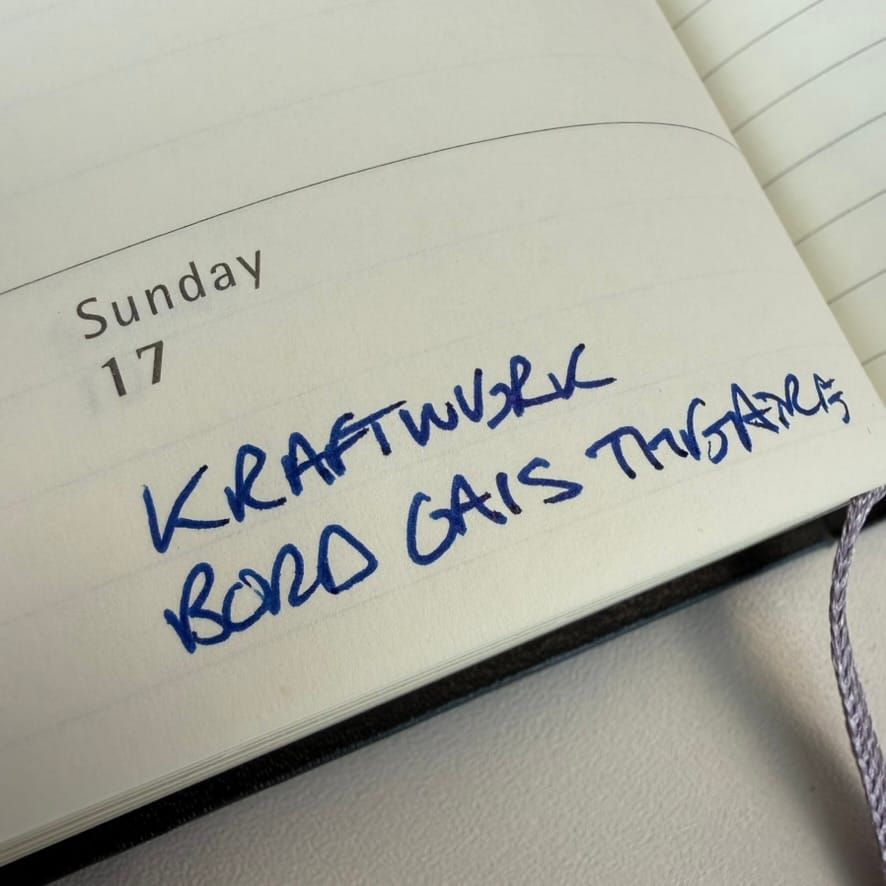 Sunday
17
KRAFTWERK
BORD GAIS THEATRE